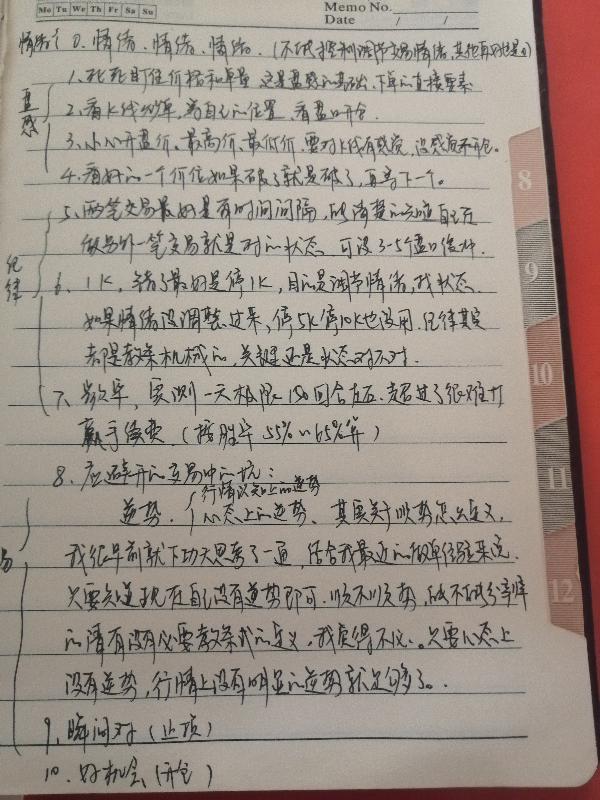 Mo Tu We Th Fr Sa Su
Memo No.
Date / /
情绪:0.情绪、情绪、情绪。(不能控制调节交易情绪,其他再好也是0)
1、死死盯住价格和单量 这是盘感的基础、下单的直接要素
盘感
2、看K线纱单,有自己的位置、看盘口开仓
3、小心开盘价、最高价、最低价,要对K线有感觉,没感觉不开仓。
4、看好的一个价位如果破了就是破了,再等下一个。
5、两笔交易最好是有时间间隔,能清楚的知道自己在
做另外一笔交易就是对的状态 可设3~5个盘口
纪律
6、1K,错了最好是停1K,目的是调节情绪,找状态
如果情绪没调整过来,停5K停10K也没用.纪律其实
都是教条机械的,关键还是状态对不对.
7、单,实测一天极限150回合左右.超过了很难打
赢手续费.(按胜率55%~65%算)
8、应避开的交易中的坑:
行情认知上的逆势
逆势. 心态上的逆势、其实关于顺势怎么定义,
我很早前就下功夫思考了一通,结合我最近的做单经验来说
只要知道现在自己没有逆势即可.顺不顺势,能不能分清
的清有没有必要教条式的定义,我觉得不必。只要心态上
没有逆势,行情上没有明显的逆势就足够了。
9、瞬间对(止损)
10、好机会(开仓)
8
9
10
11
12